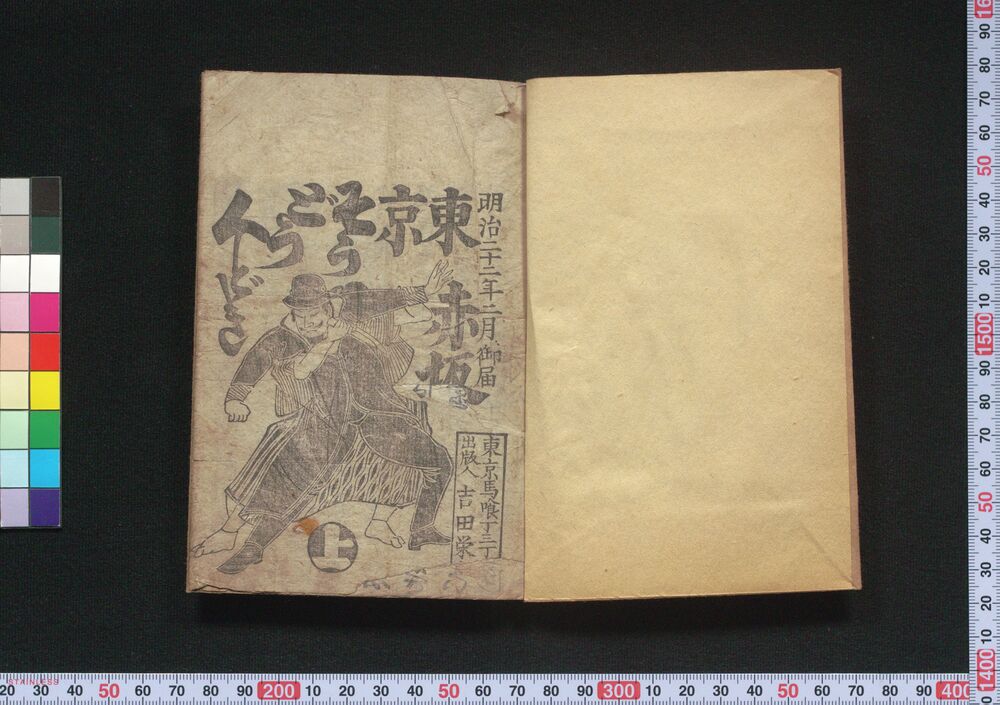 明治二十二年二月御届
東京
赤坂
そう
どう
どき
東京馬喰丁三丁
出版人 吉田栄
上
STAINLESS
20 30 40 50 60 70 80 90 200 10 20 30 40 50 60 70 80 90 300 10 20 30 40 50 60 70 80 90 400
90 80 70 60 50 40 30 20 10 1500 90 80 70 60 50 40 30 20 10 1400